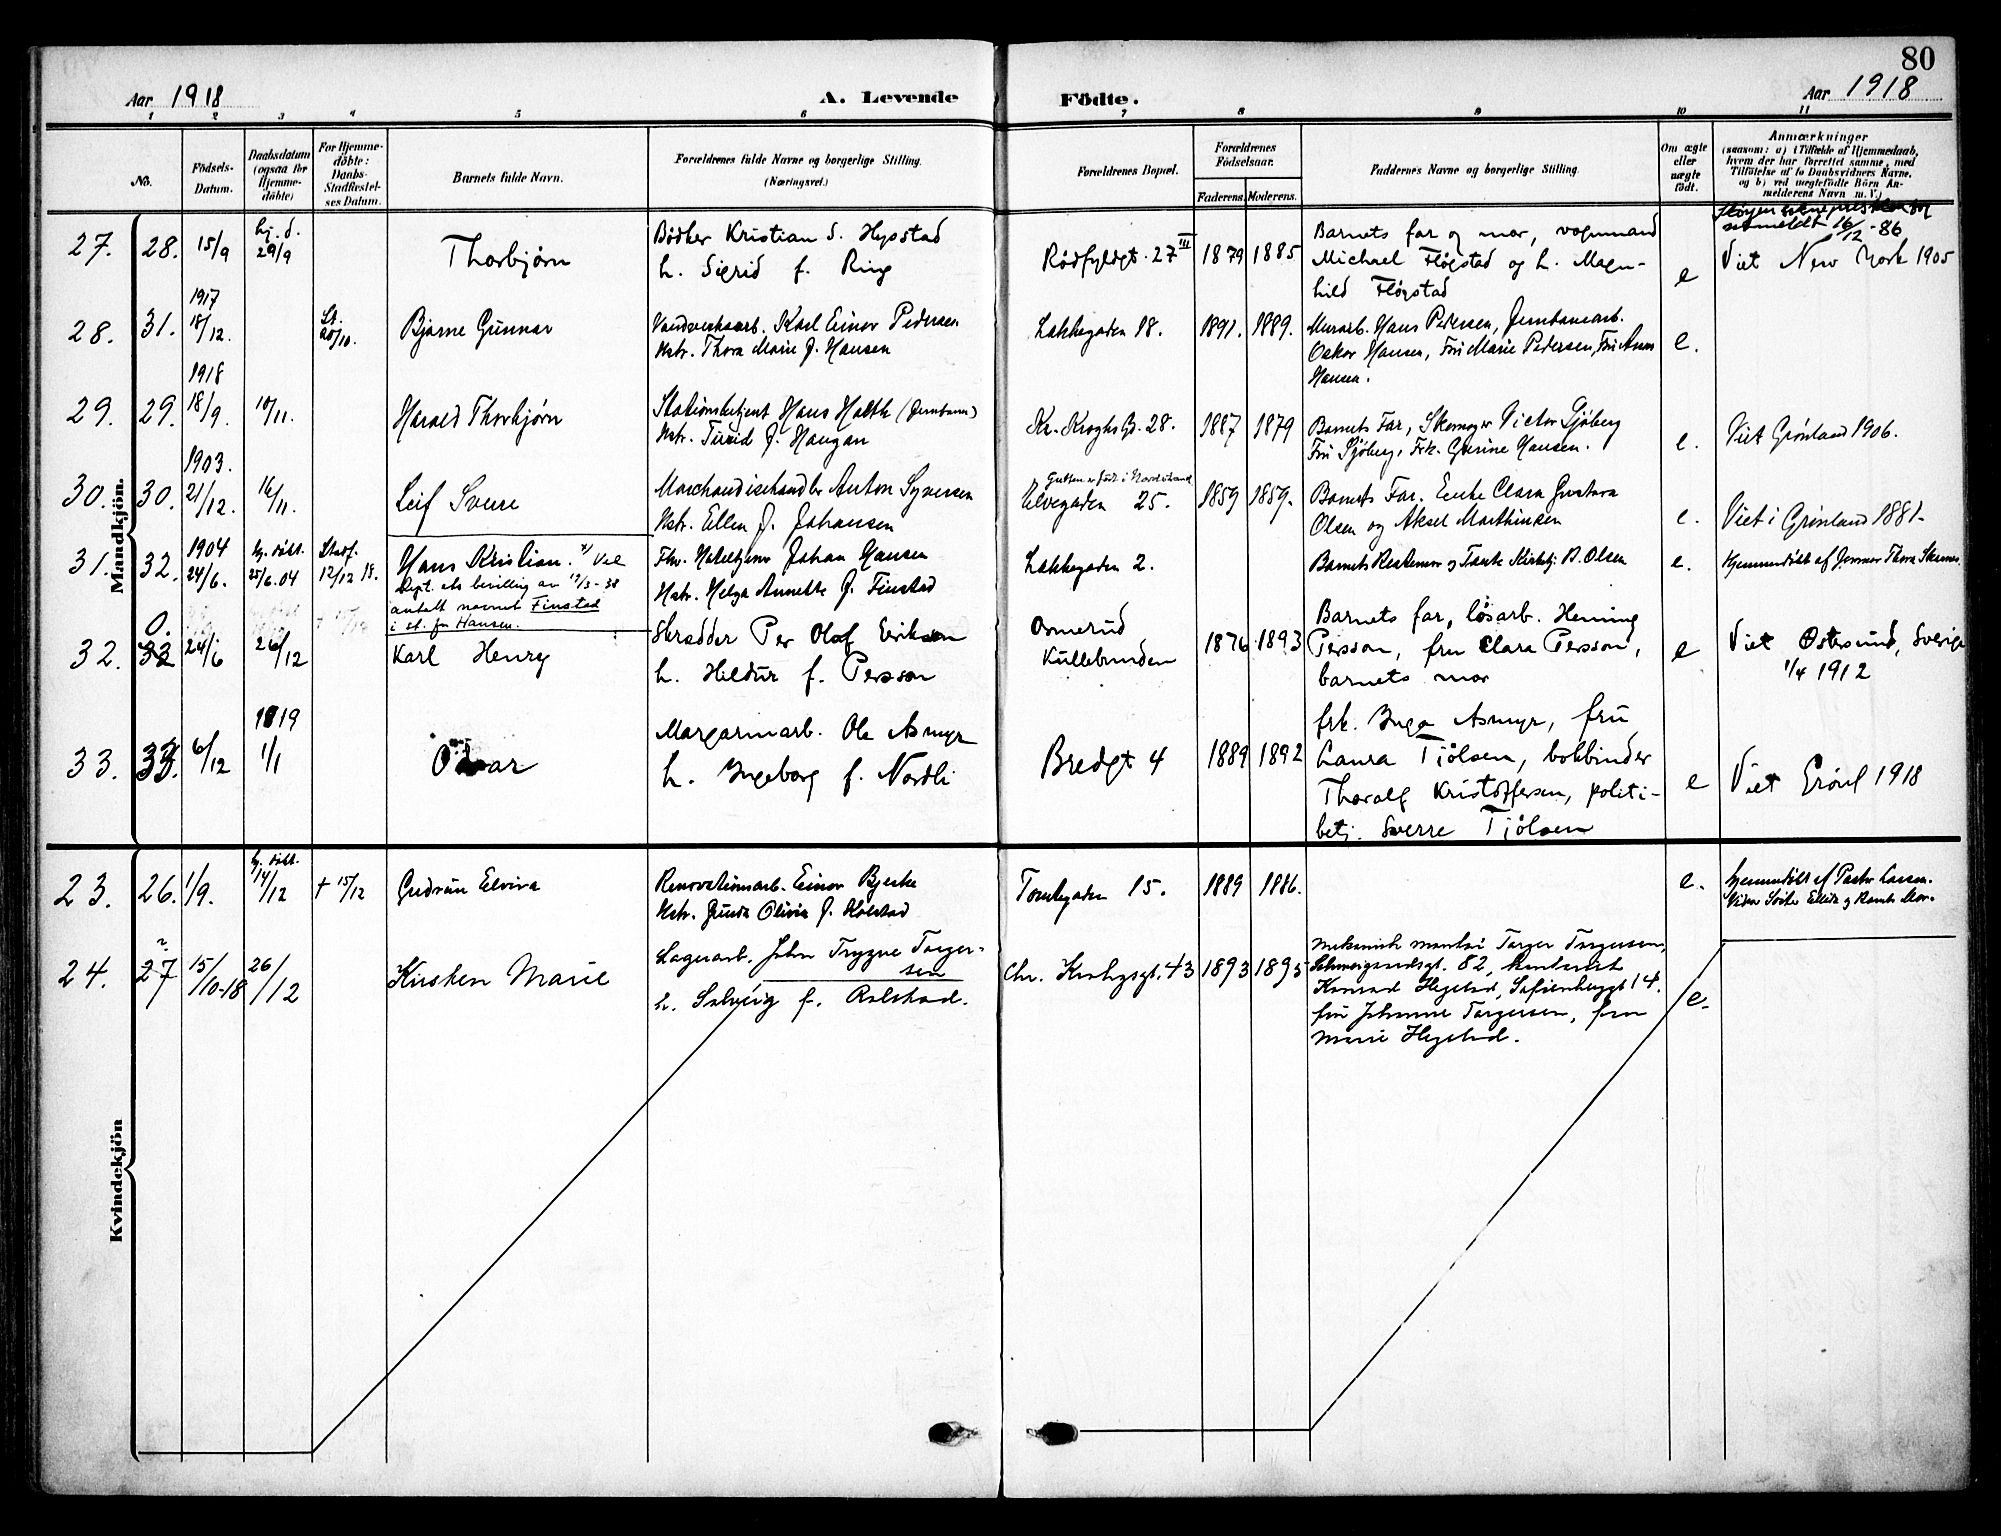 80
Aar 1918
A. Levende
Födte.
Aar 1918
1 2 3 4 5 6 7 8 9 10 11
No.
Födsels-
Datum.
Daabsdatum
(ogsaa for
Hjemme-
döbte)
For Hjemme-
döbte:
Daabs-
Stadfæstel-
ses Datum.
Barnets fulde Navn.
Forældrenes fulde Navne og borgerlige Stilling.
(Næringsvei.)
Forældrenes Bopæl.
Forældrenes
Födselsaar.
Faderens.
Moderens.
Faddernes Navne og borgerlige Stilling.
Om ægte
eller
uægte
födt.
Anmærkninger
(saasom: a) i Tilfælde af Hjemmedaab,
hvem der har forrettet samme, med
Tilföielse af to Daabsvidners Navne.
og b) ved uegtefödte Börn An-
melderens Navn m. V.)
Mandkjön.
27. 28. 15/9
hj. d.
29/9
Thorbjørn
Bødker Kristian S.
h. Sigrid f. Ring
Rødfyldgt. 27 III
1879 1885
Barnets far og mor, vognmand
Michael Fløgstad og h. Magn-
hild Fløgstad
e
utmeldt 16/12 - 86
Viet New York 1905
28. 31.
1917
18/12.
St.
20/10.
Bjarne Gunnar
Karl Einar Pedersen
Hstr. Thora Marie f. Hansen
Lakkegaden 18.
1891. 1889.
Murarb. Hans Pedersen, Jernbanearb.
Oskar Hansen, Fru Marie Pedersen, Fru Anna
Hansen.
e.
29. 29.
1918
18/9.
10/11.
Harald Thorbjørn
Stationsbetjent Hans Holth (Jernbanen)
Hstr. Turid f. Haugan
Kr. Kroghs G. 28.
1887 1879
Barnets Far, Skomager Victor Sjöberg
Fru Sjöberg, Frk. Gurine Hansen.
e.
Viet Grønland 1906.
30. 30.
1903.
21/12.
16/11.
Leif Sverre
Marchandisehandler Anton Syversen
Hstr. Ellen f. Johansen
Gutten er født i Nordstrand
Elvegaden 25.
1859 1859.
Barnets Far. Enke Clara Gustava
Olsen og Aksel Marthinsen
e.
Viet i Grønland 1881.
31. 32.
1904
24/6.
hj. døbt.
25/6.04
Stadf.
12/12 18.
Hans Kristian. x) Ved
Dept. ets bevilling av 12/3-38
antatt navnet Finstad
i st. for Hansen.
Johan Hansen
Hstr. Helga Annette f. Finstad
Lakkegaden 2.
Barnets Bestemor og Tante Kirketj. B. Olsen
e.
Hjemmedøbt af Jormor Thora
32. 32
0.
24/6
26/12
Karl Henry
Skredder Per Olof Erikson
h. Hildur f. Persson
Ormerud
Kullebunden
1876 1893
Barnets far, løsarb. Heming
Persson, fru Clara Persson,
barnets mor
e
Viet Østersund, Sverige
1/4 1912
33. 33. 6/12
1919
1/1
Odvar
Margarinarb. Ole Asmyr
h. Ingeborg f. Nordli
Bredgt 4
1889 1892
frk. Inga Asmyr, fru
Laura Tjølsen, bokbinder
Thoralf Kristoffersen, politi-
betj. Sverre Tjølsen
e
Viet Grönl 1918
Kvindekjön
23. 26. 1/9.
hj. døbt.
14/12
+ 15/12
Gudrun Elvira
Renovationsarb. Einar Bjerke
Hstr. Gunda Olivia f. Kolstad
Tomtegaden 15.
1889 1886.
e.
Hjemmedøbt af Pastor Larsen.
24. 27
15/10-18
26/12
Kirsten Marie
Lagerarb. John Trygve Torger-
sen
h. Solveig f. Rolstad.
Chr. Krohgsgt. 43
1893 1895
Torger Torgersen,
Schweigaardsgt. 82,
Konrad Hegstad, Sofienberggt 14.
fru Johanne Torgersen, fru
Marie Hegstad.
e.